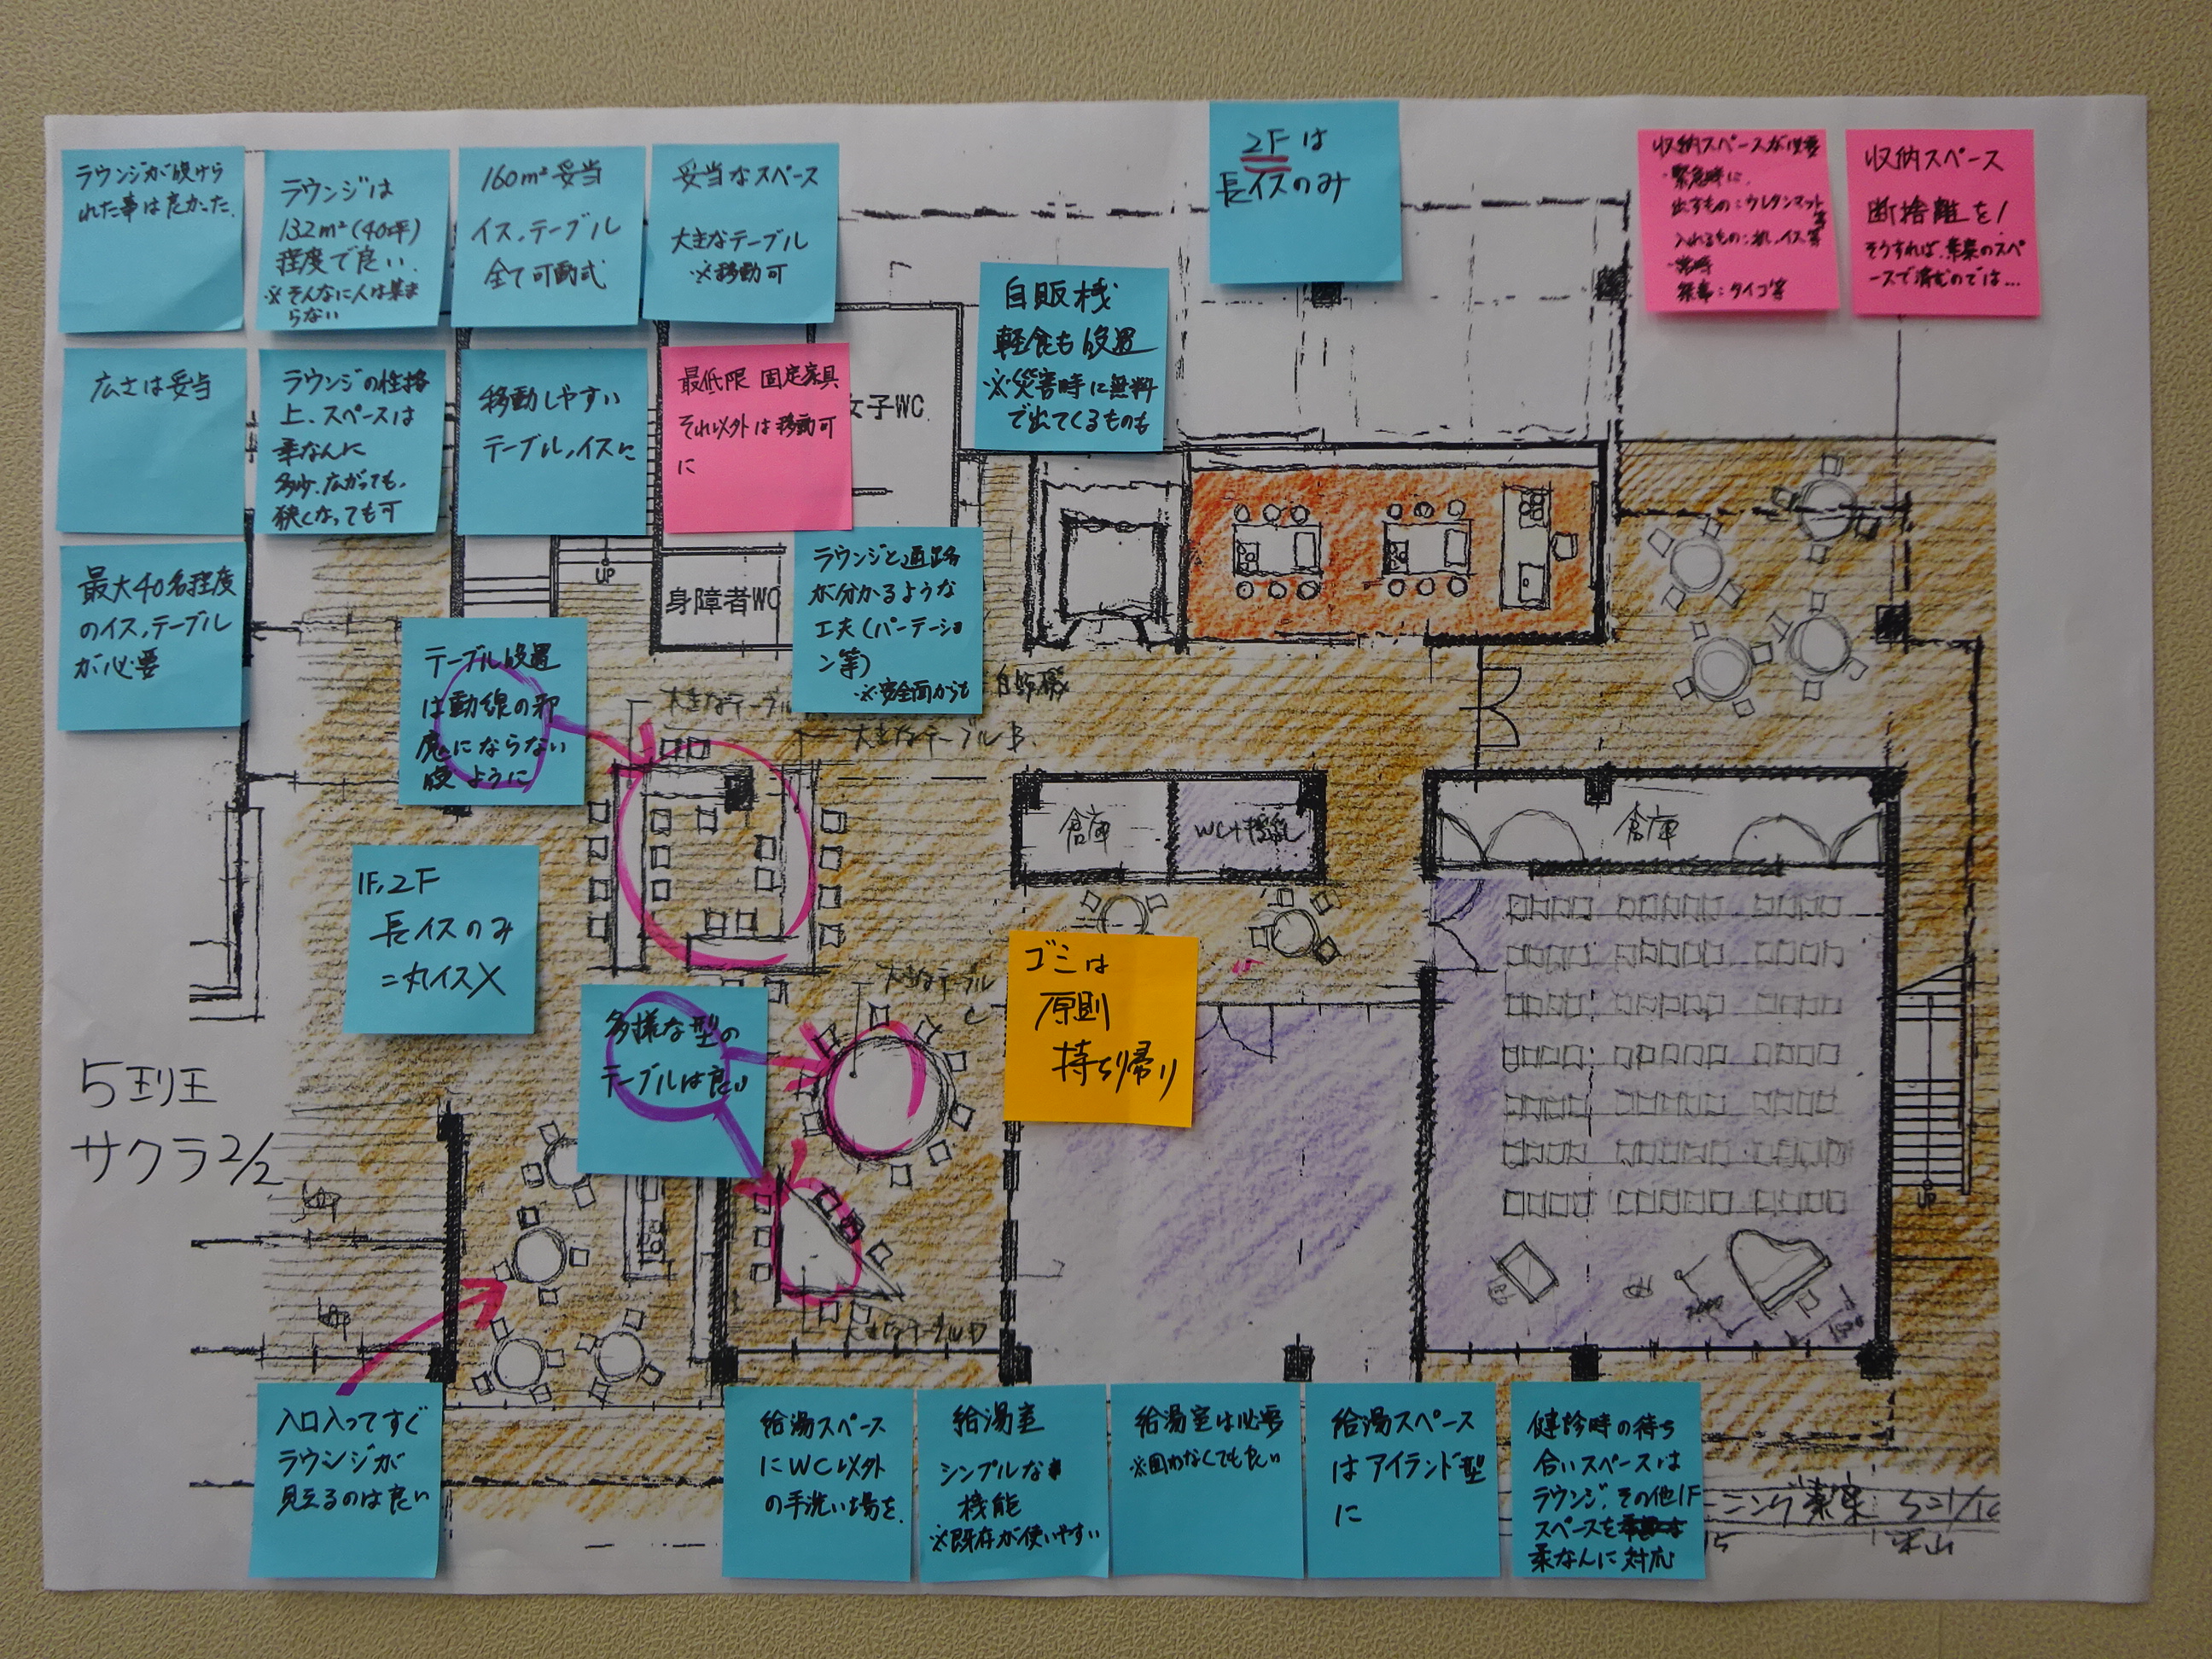 ラウンジが設けら
れた事は良かった.
ラウンジは
132m²(40坪)
程度で良い.
※そんなに人は集ま
らない
160m²妥当
イス,テーブル
全て可動式
妥当なスペース
大きなテーブル
※移動可
2Fは
長イスのみ
収納スペースが必要
・緊急時に
出すもの:ウレタンマット等
入れるもの:机,イス等
・常時
収納スペース
断捨離を!
そうすれば、素案のスペ
ースで済むのでは…
自販機
軽食も設置
※災害時に無料
で出てくるものも
広さは妥当
ラウンジの性格
上、スペースは
柔なんに
多少、広がっても、
狭くなっても可
移動しやすい
テーブル,イスに
最低限 固定家具
それ以外は移動可
に
女子WC
最大40名程度
のイス,テーブル
が必要
UP
身障者WC
ラウンジと通路
が分かるような
工夫(パーテーショ
ン等)
※安全面からも
テーブル設置
は動線の邪
魔にならない
ように
大きなテーブル
自販機
大きなテーブルB
倉庫
倉庫
1F,2F
長イスのみ
=丸イスX
ゴミは
原則
持ち帰り
大きなテーブル
C
多様な型の
テーブルは良い
5班
サクラ2/2
UP
大きなテーブルD
入口入ってすぐ
ラウンジが
見えるのは良い
給湯スペース
にWC以外
の手洗い場を.
給湯室
シンプルな
機能
※既存が使いやすい
給湯室は必要
※囲わなくても良い
給湯スペース
はアイランド型
に
健診時の待ち
合いスペースは
ラウンジ,その他1F
スペースを
柔なんに対応
ニング素案